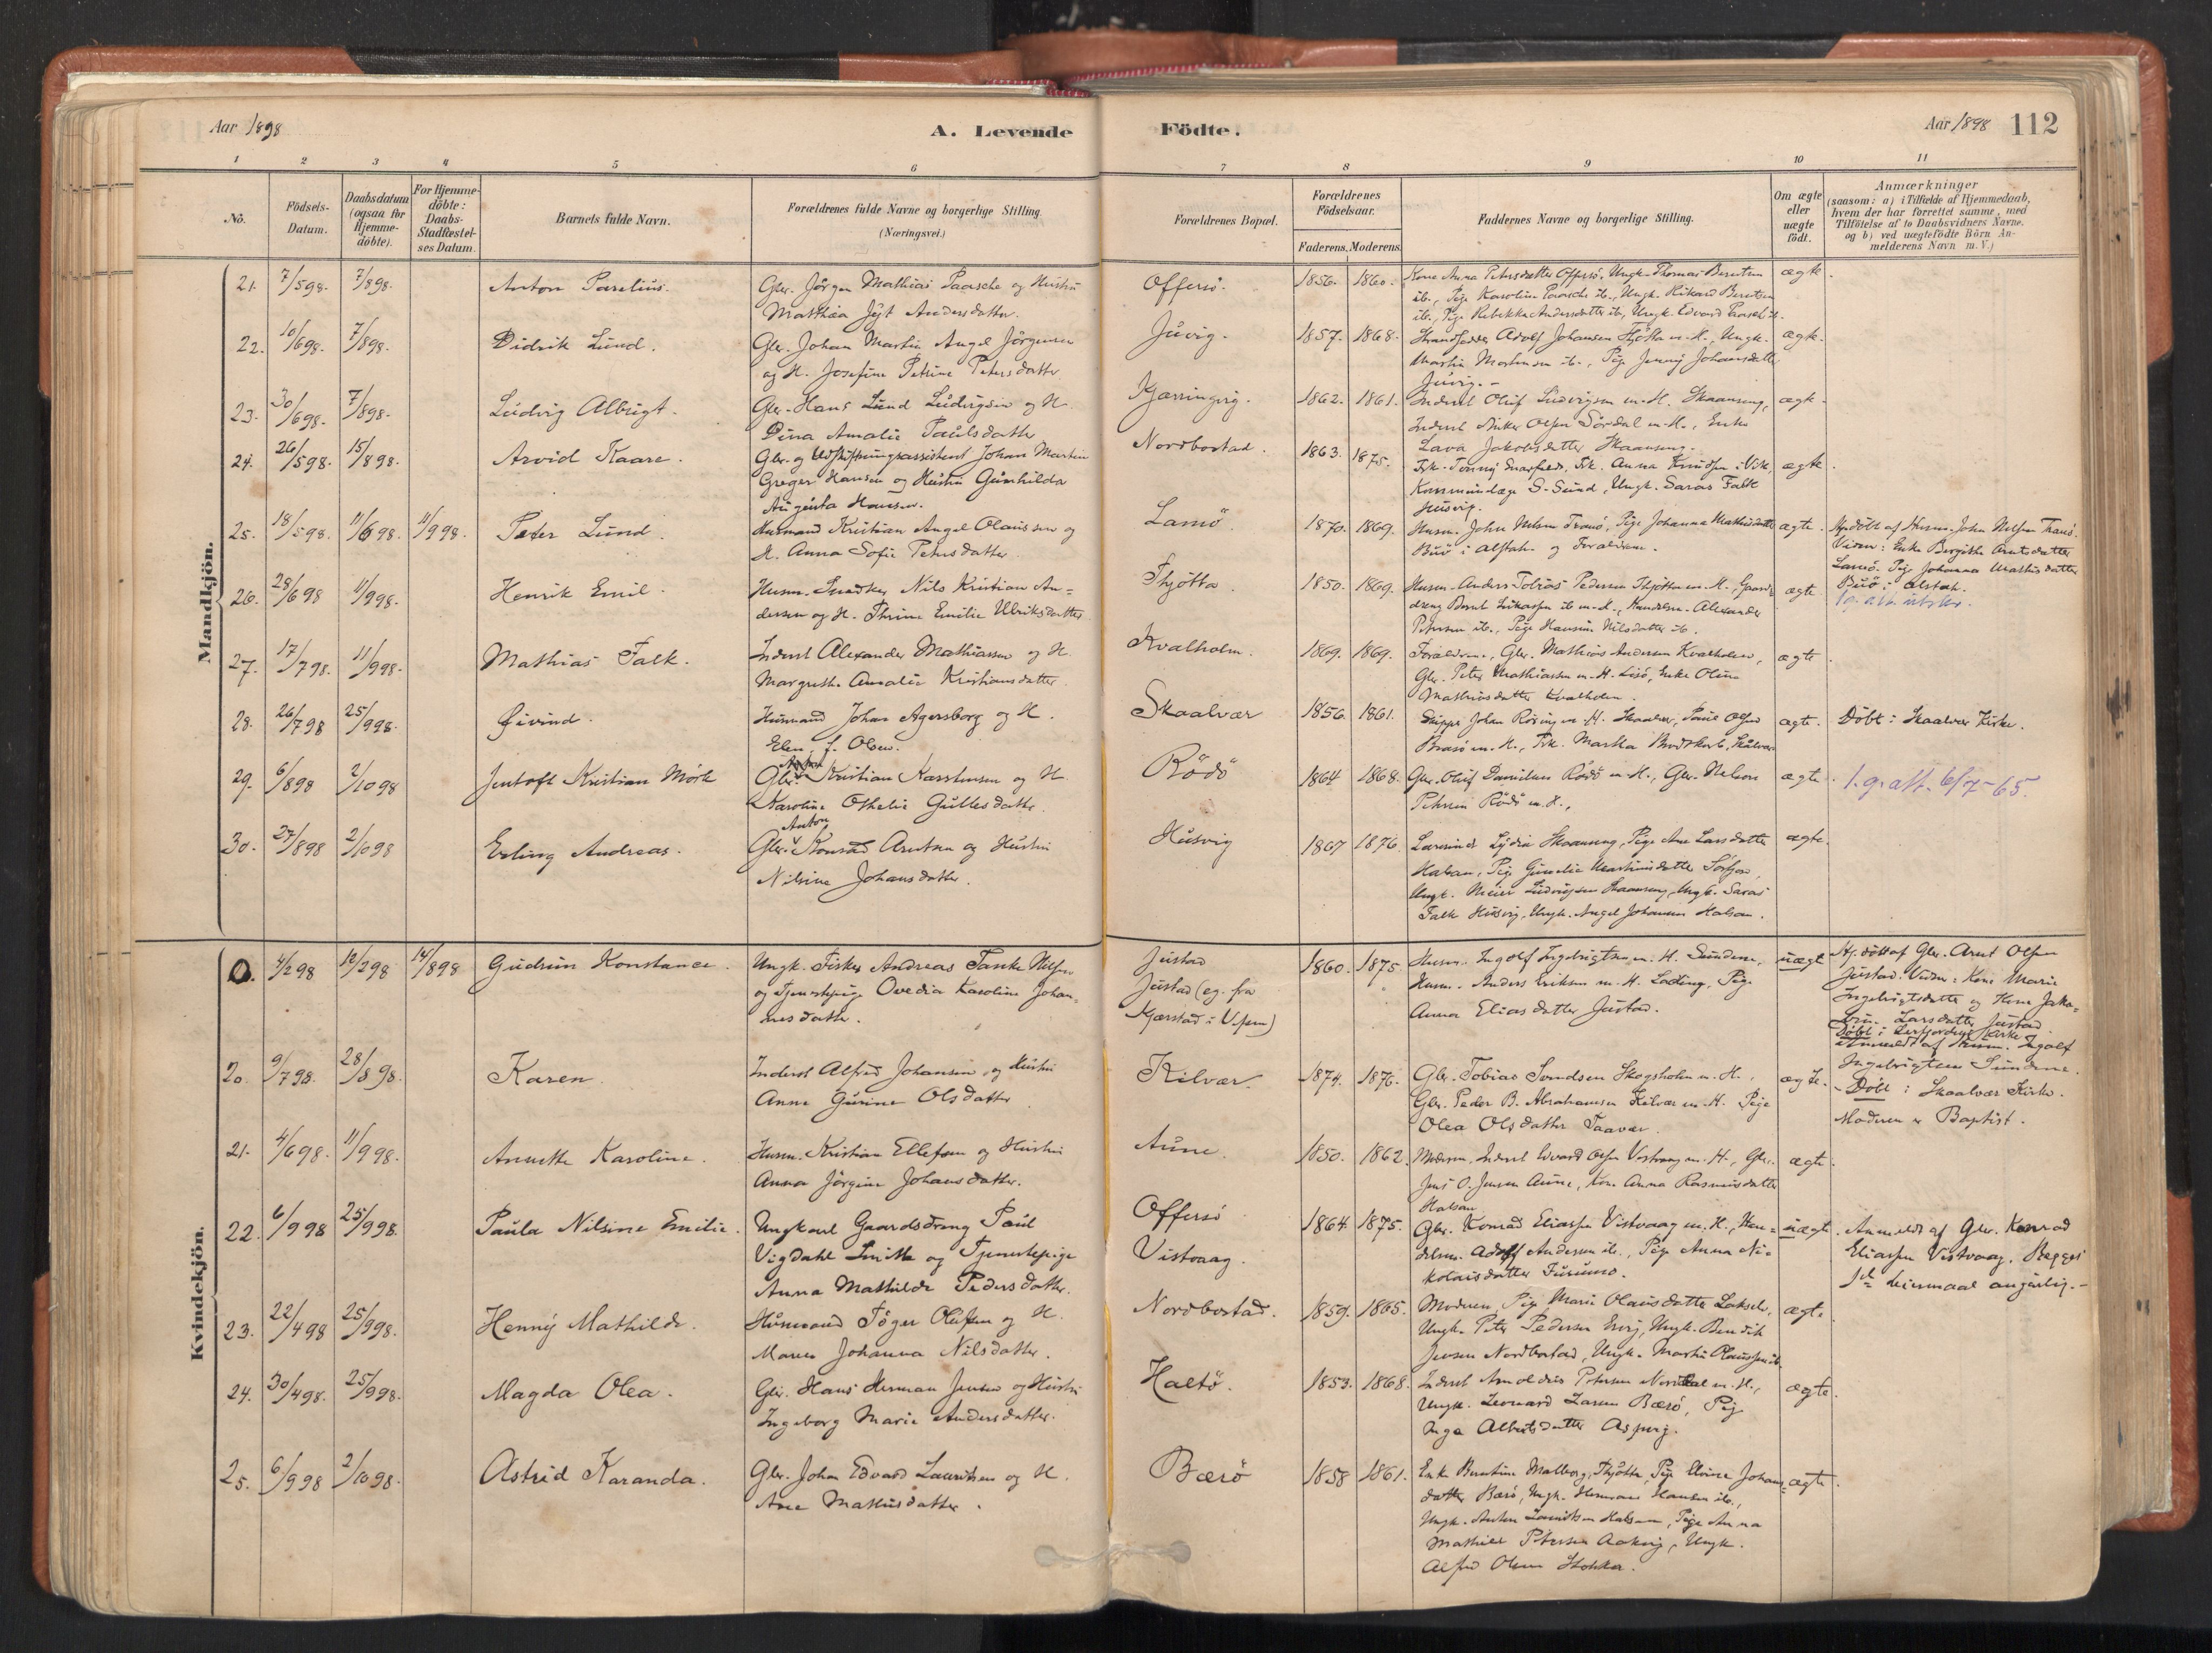 Aar 1898
A. Levende
Födte.
Aar 1898 112
1 2 3 4 5 6 7 8 9 10 11
No.
Födsels-
Datum.
Daabsdatum
(ogsaa for
Hjemme-
döbte).
For Hjemme-
döbte:
Daabs-
Stadfæstel-
ses Datum.
Barnets fulde Navn.
Forældrenes fulde Navne og borgerlige Stilling.
(Næringsvei.)
Forældrenes Bopæl.
Forældrenes
Födselsaar.
Faderens. Moderens.
Faddernes Navne og borgerlige Stilling.
Om ægte
eller
uægte
födt.
Anmærkninger
(saasom: a) i Tilfælde af Hjemmedaab,
hvem der har forrettet samme, med
Tilföielse af to Daabsvidners Navne.
og b) ved uægtefödte Börn An-
melderens Navn m. V.)
Mandkjön.
21. 7/598. 7/898. Anton Parelius. Gbr. Jörgen Mathias Paasche og Hustru
Mathea Jgt Andersdatter.
Offersö. 1856. 1860. Kone Anna Petersdatter Offersö, Ungk. Thomas Berntsen
ib., Pige Karoline Paasche ib., Ungk. Rikard Berntsen
ib., Pige Rebekka Andersdatter ib., Ungk. Edvard Paasche ib.
ægte.
22. 10/698. 7/898. Didrik Lund. Gbr. Johan Martin Angel Jörgensen
og H. Josefine Petrine Petersdatter
Juvig. 1857. 1868. Adolf Johansen Thjötta m. H., Ungk.
Martin Mortensen ib., Pige Jenny Johansdatter
Juvig.
ægte.
23. 30/698. 7/898. Ludvig Albrigt. Gbr. Hans Lund Ludvigsen og H.
Dina Amalie Paulsdatter
Kjærringvig. 1862. 1861. Inderst Oluf Ludvigsen m. H. Skaanseng,
Inderst Anker Olsen Sördal m. H., Enke
Lava Jakobsdatter Skaanseng.
ægte.
24. 26/598. 15/898. Arvid Kaare. Gbr. og Udskiftningsassistent Johan Martin
Greger Hansen og Hustru Gunhilda
Augusta Hansen.
Nordbostad. 1863. 1875. Frk. Tonny, Frk. Anna Knudsen i Vik,
Kommunelæge S. Sund, Ungk. Saras Falk
Husvig.
ægte.
25. 18/598. 11/698. 11/998. Peter Lund. Husmand Kristian Angel Olaussen og
H. Anna Sofie Petersdatter.
Lamö. 1870. 1869. Husm. John Nelsen Tranö, Pige Johanna Mathisdatter
Buö i Alstah. og Forældrene.
ægte.
Hj. döbt af Husm. John Nelsen Tranö.
Vidner: Enke Bergithe Arntsdatter
Lamö. Pige Johanna Mathisdatter
Buö i Alstah.
26. 28/698 11/998. Henrik Emil. Husm. Snedker Nils Kristian An-
dersen og H. Thrine Emilie Ulriksdatter
Thjötta 1850. 1869. Husm. Anders Tobias Pedersen Thjötta m. H., Gaards-
dreng Bernt Lukassen ib m. H., Handelsm. Alexander
Petersen ib., Pige Hansine Nilsdatter ib.
ægte 1 g. att. utskr.
27. 17/798. 11/998. Mathias Falk. Inderst Alexander Mathiassen og H.
Margrethe Amalie Kristiansdatter.
Kvalholm. 1869. 1869. Forældrene, Gbr. Mathias Andersen Kvalholm,
Gbr. Peter Mathiassen m. H. Lisö, Enke Oline
Mathiasdatter Kvalholm.
ægte
28. 26/798 25/998. Øivind. Husmand Johan Agersborg og H.
Elen, f. Olsen.
Skaalvær 1856. 1861. Skipper Johan Röring m. H. Skaalvær, Paul Olsen
Brasö m. H., Frk. Martha Brodtkorb, Skålvær
ægte. Döbt i Skaalvær Kirke.
29. 6/898 2/1098 Jentoft Kristian Mörk Gbr. Kristian Karstensen og H.
Karoline Othelie Gullesdatter.
Rödö 1864 1868. Gbr. Oluf Danielsen Rödö m. H., Gbr. Nelson
Petersen Rödö m. H.,
ægte. 1. g. att. 6/7-65.
30. 27/898 2/1098 Erling Andreas. Gbr. Anton Konrad Arntsen og Hustru
Nilsine Johansdatter.
Husvig 1867 1876 Lærerinde Lydia Skaanseng, Pige Ane Larsdatter
Halsan, Pige Gunelie Martinusdatter,
Ungk. Meier Ludvigsen Skaanseng, Ungk. Saras
Falk Husvig, Ungk. Angel Johansen Halsan.
ægte.
Kvindekjön.
4/298 12/298 14/898 Gudrun Konstance. Ungk. Fisker Andreas Tanke Nilsen
og Tjenestepige Ovedia Karoline Johan-
nesdatter.
Justad
Justad (eg. fra
Kjærstad i Vefsen)
1860. 1875. Husm. Ingolf Ingebrigtsen m. H. Sundene,
Husm. Anders Eriksen m. H. Lading, Pige
Anna Eliasdatter Justad.
uægte
Hj. döbt af Gbr. Arnt Olsen
Justad. Vidner: Kone Marie
Ingebrigtsdatter og Kone Jako-
bine Larsdatter Justad.
Döbt i Leirfjordens Kirke
Anmeldt af Husm. Ingolf
Ingebrigtsen Sundene.
20. 9/798. 28/898. Karen. Inderst Alfred Johansen og Hustru
Anne Gurine Olsdatter
Kilvær. 1874. 1876. Gbr. Tobias Svendsen Skogsholm m. H.,
Gbr. Peder B. Abrahamsen Kilvær m. H. Pige
Olea Olsdatter Taavær.
ægte. Döbt i Skaalvær Kirke.
Moderen er Baptist.
21. 4/698. 11/998. Annette Karoline. Husm. Kristian Ellefsen og Hustru
Anna Jörgine Johansdatter.
Aune. 1850. 1862. Moderen, Inderst Edvard Olsen Vistvaag m. H., Gbr.
Jens O. Jensen Aune, Kone Anna Rasmusdatter
Halsan
ægte.
22. 6/998 25/998. Paula Nilsine Emilie. Ungkarl Gaardsdreng Paul
Vigdahl Smith og Tjenestepige
Anna Mathilde Pedersdatter.
Offersö
Vistvaag.
1864. 1875. Gbr. Konrad Eliassen Vistvaag m. H., Han-
delsm. Adolf Andersen ib., Pige Anna Ni-
kolaisdatter Furumo.
uægte. Anmeldt af Gbr. Konrad
Eliassen Vistvaag. Begges
1ste Leiermaal angivelig.
23. 22/498 25/998. Henny Mathilde. Husmand Töger Olufsen og H.
Maren Johanna Nilsdatter.
Nordbostad. 1859. 1865. Moderen, Pige Marie Olausdatter,
Ungk. Peter Pedersen, Ungk. Bendik
Jensen Nordbostad, Ungk. Martin Olaussen ib.
ægte
24. 30/498. 25/998. Magda Olea. Gbr. Hans Herman Jensen og Hustru
Ingeborg Marie Andersdatter.
Haltö. 1853. 1868. Inderst Arnoldus Petersen m. H.,
Ungk. Leonard Larsen Bærö, Pige
Inga Albertsdatter Aspvig.
ægte.
25. 6/998 2/1098. Astrid Karanda. Gbr. Johan Edvard Lauritsen og H.
Ane Mathisdatter.
Bærö 1858 1861. Enke Berntine Malborg, Thjötta, Pige Elvine Johans-
datter Bærö, Ungk. Herman Hansen ib.,
Ungk. Anton Lauritsen Halsan, Pige Anna
Mathilde Petersen, Ungk.
Alfred Olsen Stokka.
ægte.